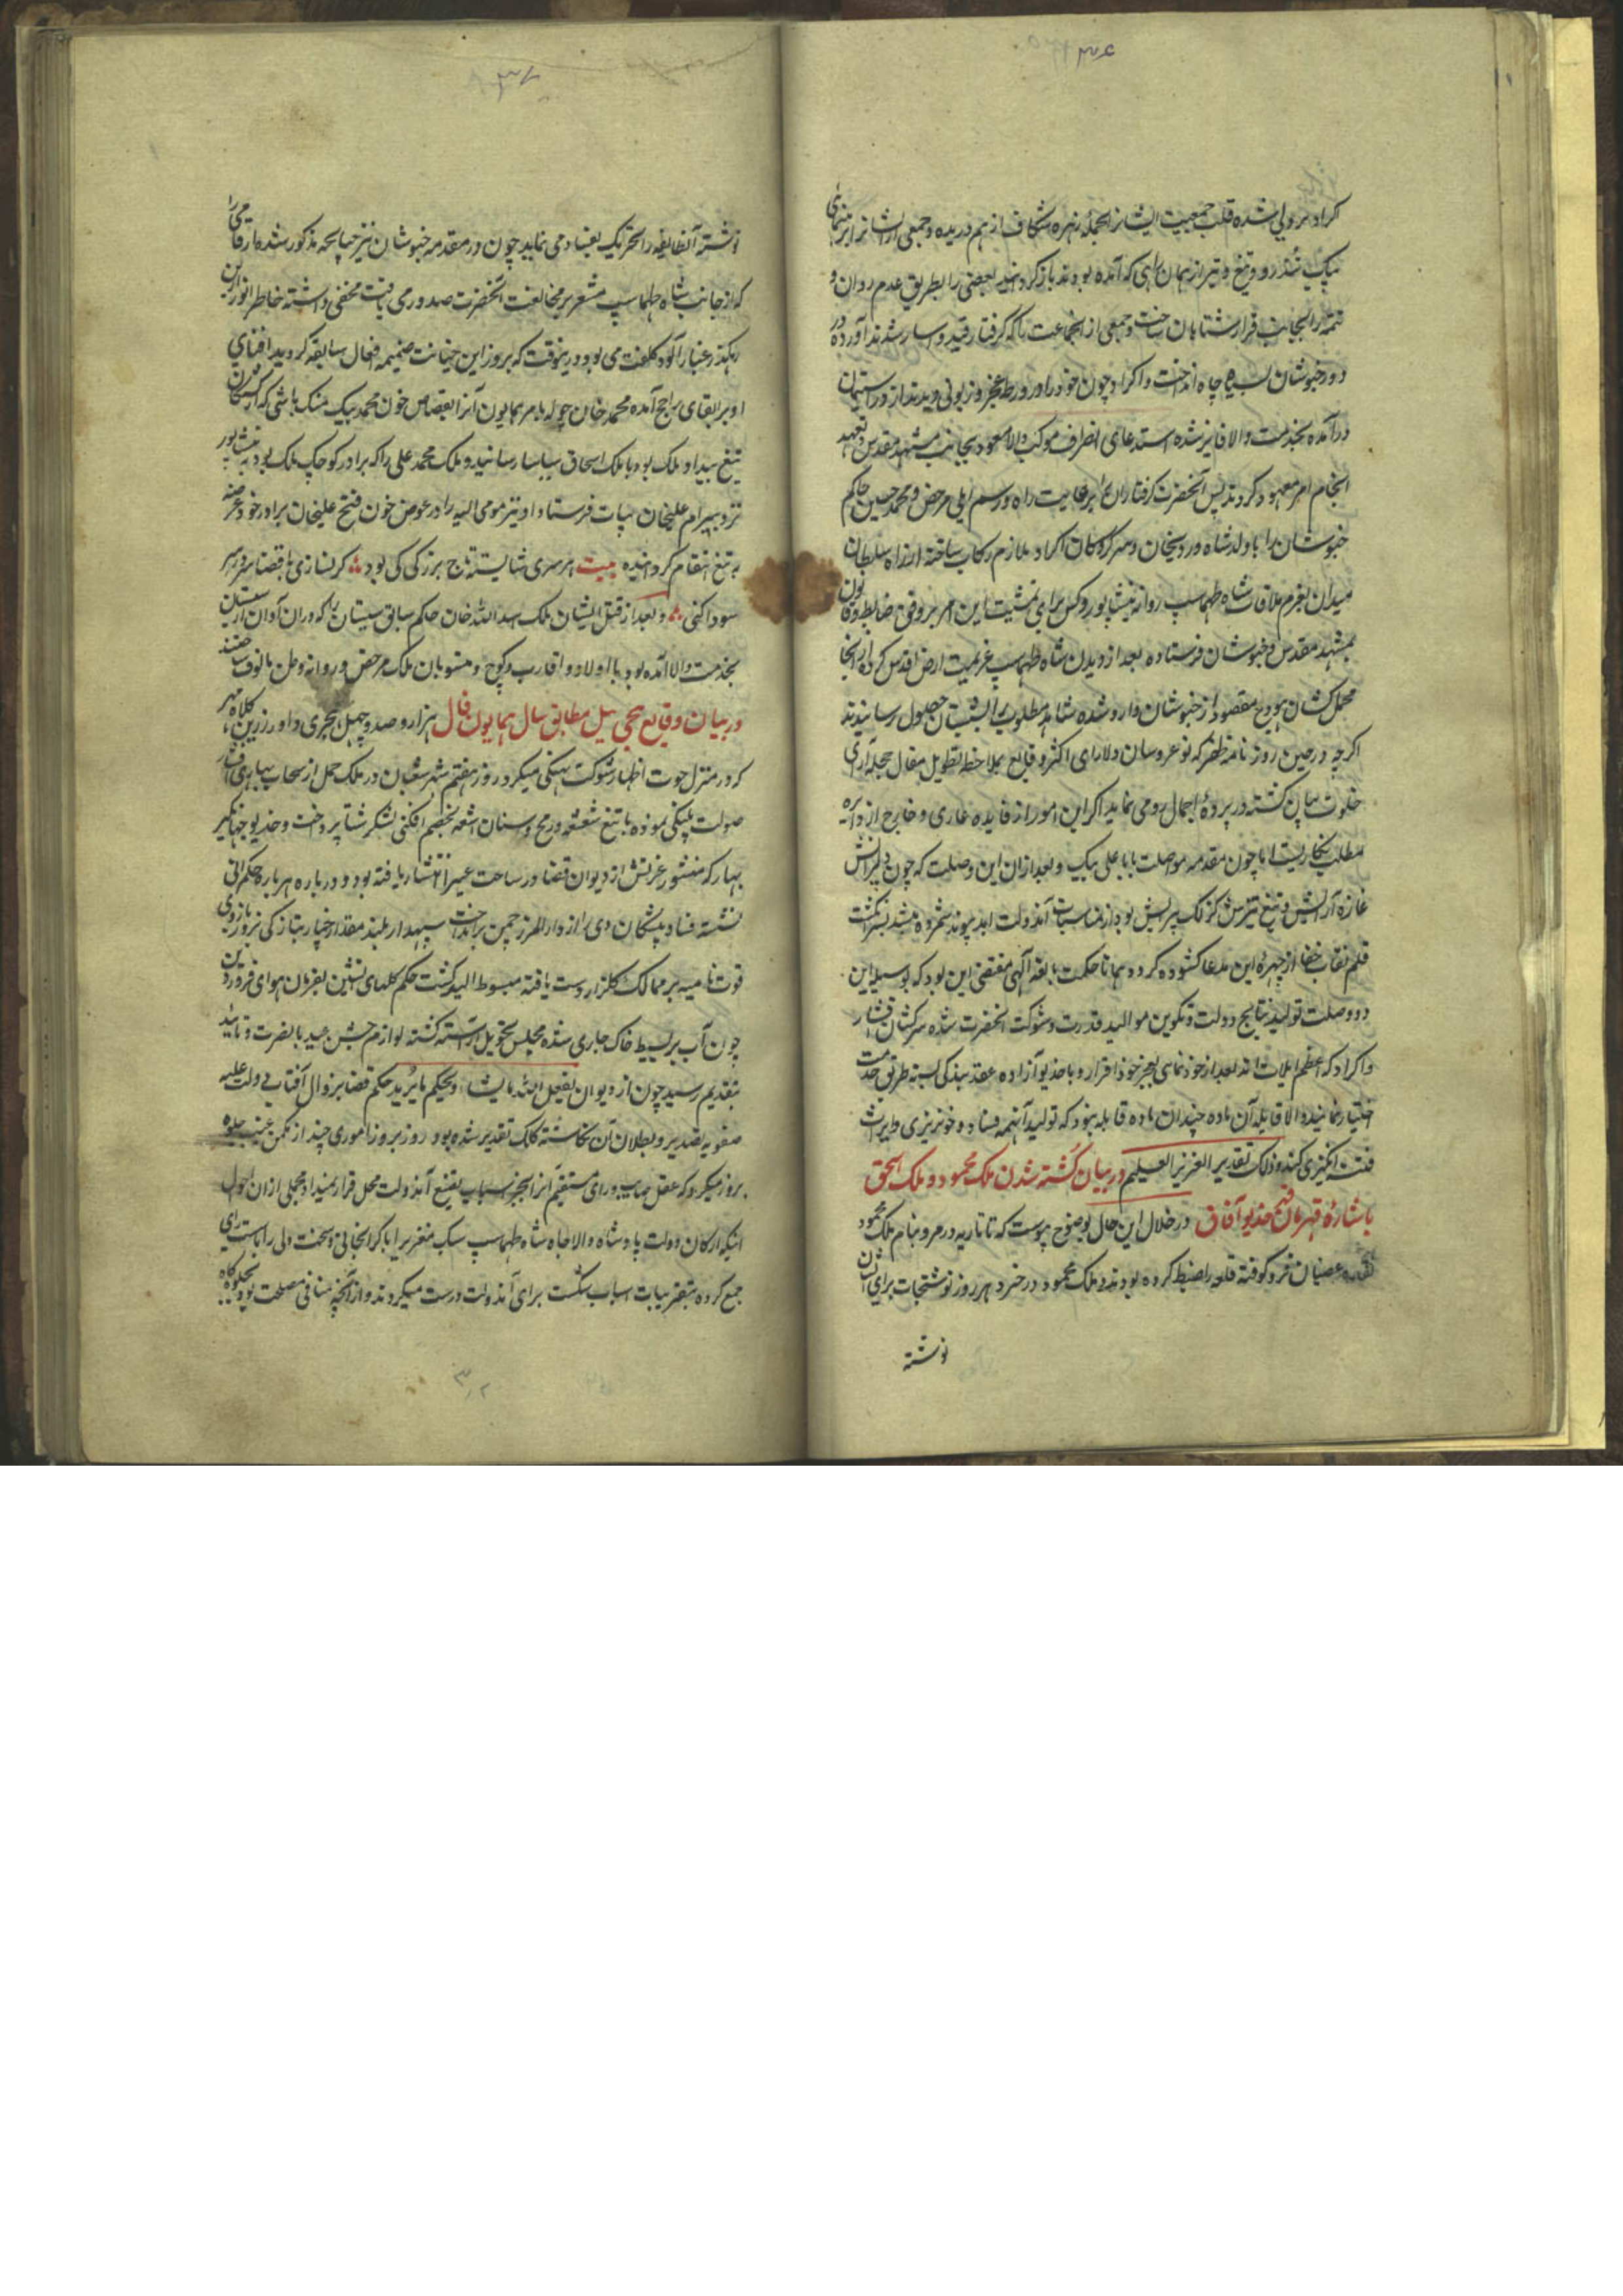 ۳۶
اکراد بر ولی شده قلب جمعیت ایشانرا بحملهٔ زهره شکاف از هم دریده و جمعی از ایشانرا برهنمائی
پیک تندرو تیغ و تیر از همان راهی که آمده بودند باز گردانیده بعضی را بطریق عدم روان و
تتمه را بجانب فرار شتابان ساخت و جمعی از انجماعت را که گرفتار قید و اسار شدند آورده در
دور خبوشان بسیاه چاه انداخت و اکراد چون خود را در ورطه عجز و زبونی دیدند از در استیمان
درآمده بخدمت والا فایز شده استدعای انصراف موکب والا و معود بجانب مشهد مقدس و تعهد
انجام امر معهود کردند پس آنحضرت گرفتاران را برعایت راه و رسم ایلی مرخص و محمد حسین حاکم
خبوشان را با ولد شاه وردیخان و سرکردگان اکراد ملازم رکاب ساخته از راه سلطان
میدان بعزم ملاقات شاه طهماسب روانه نیشاپور و کس برای تمشیت این امر بر وفق ضابطه و قانون
بمشهد مقدس و خبوشان فرستاده بعد از دیدن شاه طهماسب عزیمت ارض اقدس کرده از آنجا
محمل کشان هودج مقصود از خبوشان وارد شده شاهد مطلوب را بشبستان حصول رسانیدند
اگرچه در حین روزنامه ظفر که نو عروسان دلارای اکثر وقایع بملاحظه تطویل مقال حجله آرای
خلوت بیان نگشته در پردهٔ اجمال رو می نماید ذکر این امور از فایده عاری و خارج از دایره
مطلب نگاریست اما چون مقدمه مواصلت بابا علی بیک و بعد از ان این وصلت که چون دلیرانش
غازه آرایش و تیغ تیزش گزلک پیرایش بود از مناسبات آندولت ابد پیوند شمرده میشد بسرانگشت
قلم نقاب خفا از چهره این مدعا گشوده گردد همانا حکمت بالغه الهی مقتضی این بود که بوسیله این
دو وصلت تولید نتایج دولت و تکوین موالید قدرت و شوکت آنحضرت شده سرکشان افشار
و اکراد که اعظم ایلات اند بعد از خودنمائی بعجز خود اقرار و با خدیو آزاده عقد بندگی بسته طریق خدمت
اختیار نمایند والا قابله آن ماده چندان ماده قابله نبود که تولید آنهمه فساد و خونریزی و ایراث
فتنه انگیزی کند و ذلک تقدیر العزیز العلیم در بیان کشته شدن ملک محمود و ملک اسحق
باشارهٔ قهرمان قهر خدیو آفاق در خلال این حال بوضوح پیوست که تاتاریه در مرو بنام ملک محمود
عصیان فرو کوفته قلعه را ضبط کرده بودند و ملک محمود در خرد هر روز نوشتجات برای ایشان
نوشته
۳۷
نوشته آنطایفه را تحریک بفساد می نماید چون در مقدمه خبوشان نیز چنانچه مذکور شده ارقامی را
که از جانب شاه طهماسب مشعر بر مخالفت آنحضرت صدور می یافت مخفی داشته خاطر انور از این
رهگذر غبارآلود کلفت می بود درینوقت که بروز این خیانت ضمیمه افعال سابقه گردید افنای
او بر ابقای راجح آمده محمد خان چوله بامر همایون آنرا بقصاص خون محمد بیک منک باشی که از کشتگان
تیغ بیداد ملک بود با ملک اسحاق بیاسا رسانید و ملک محمد علی را که برادر کوچک ملک بود به نیشاپور
نزد بیرام علیخان بیات فرستاد و او نیز مومی الیه را در عوض خون فتح علیخان برادر خود عرضه
تیغ انتقام گردانیده بیت هر سری شایسته تاج بزرگی کی بود گر نسازی با قضا سر در سر
سودا کنی و بعد از قتل ایشان ملک اسدالله خان حاکم سابق سیستان را که در ان آوان از سیستان
بخدمت والا آمده بود با اولاد و اقارب و کوچ و منسوبان ملک مرخص و روانه وطن مالوف ساختند
در بیان وقایع پیچی ئیل مطابق سال همایون فال هزار و صد و چهل هجری داور زرین کلاه مهر
که در منزل حوت اظهار شوکت نهنگی میکرد روز هفتم شهر شعبان در ملک حمل از سحاب بهاری آشکار
صولت پلنگی نموده با تیغ شعشعه و رمح و سنان اشعه بخصم افکنی لشکر شتا پرداخت و خدیو جهانگیر
بهار که منشور عزتش از دیوان قضا در ساحت غبرا انتشار یافته بود و درباره هر باره حکمرانی
نشسته فساد پیشگان دی را از دار المرز چمن برانداخت سپهدار بلند مقدار خیار بتازگی نیروی بازوی
قوت نامیه بر ممالک گلزار دست یافته مبسوط الید گشت حکم گلهای نشین بفرمان هوای فروردین
چون آب بر بسیط خاک جاری شده مجلس تحویل آراسته گشته لوازم جشن عید بانصرت و تائید
بتقدیم رسید چون از دیوان یفعل الله مایشاء و یحکم ما یرید حکم قضا بزوال آفتاب دولت علیه
صفویه تصدیر و بطلان آن نگاشته کلک تقدیر شده بود روز بروز اموری چند از مکمن غیب جلوه
بروز میکرد که عقل صایب و رای مستقیم آنرا بجز اسباب تضییع آندولت محمل قرار نمیداد مجملی از ان احوال
اینکه ارکان دولت پادشاه والاجاه شاه طهماسب سبک مغزیرا با گرانجانی و سخت دلی را با سست رای
جمع کرده بتقریبات اسباب شکست برای آندولت درست میکردند و از آنچه منافی مصلحت بود جلوگاه